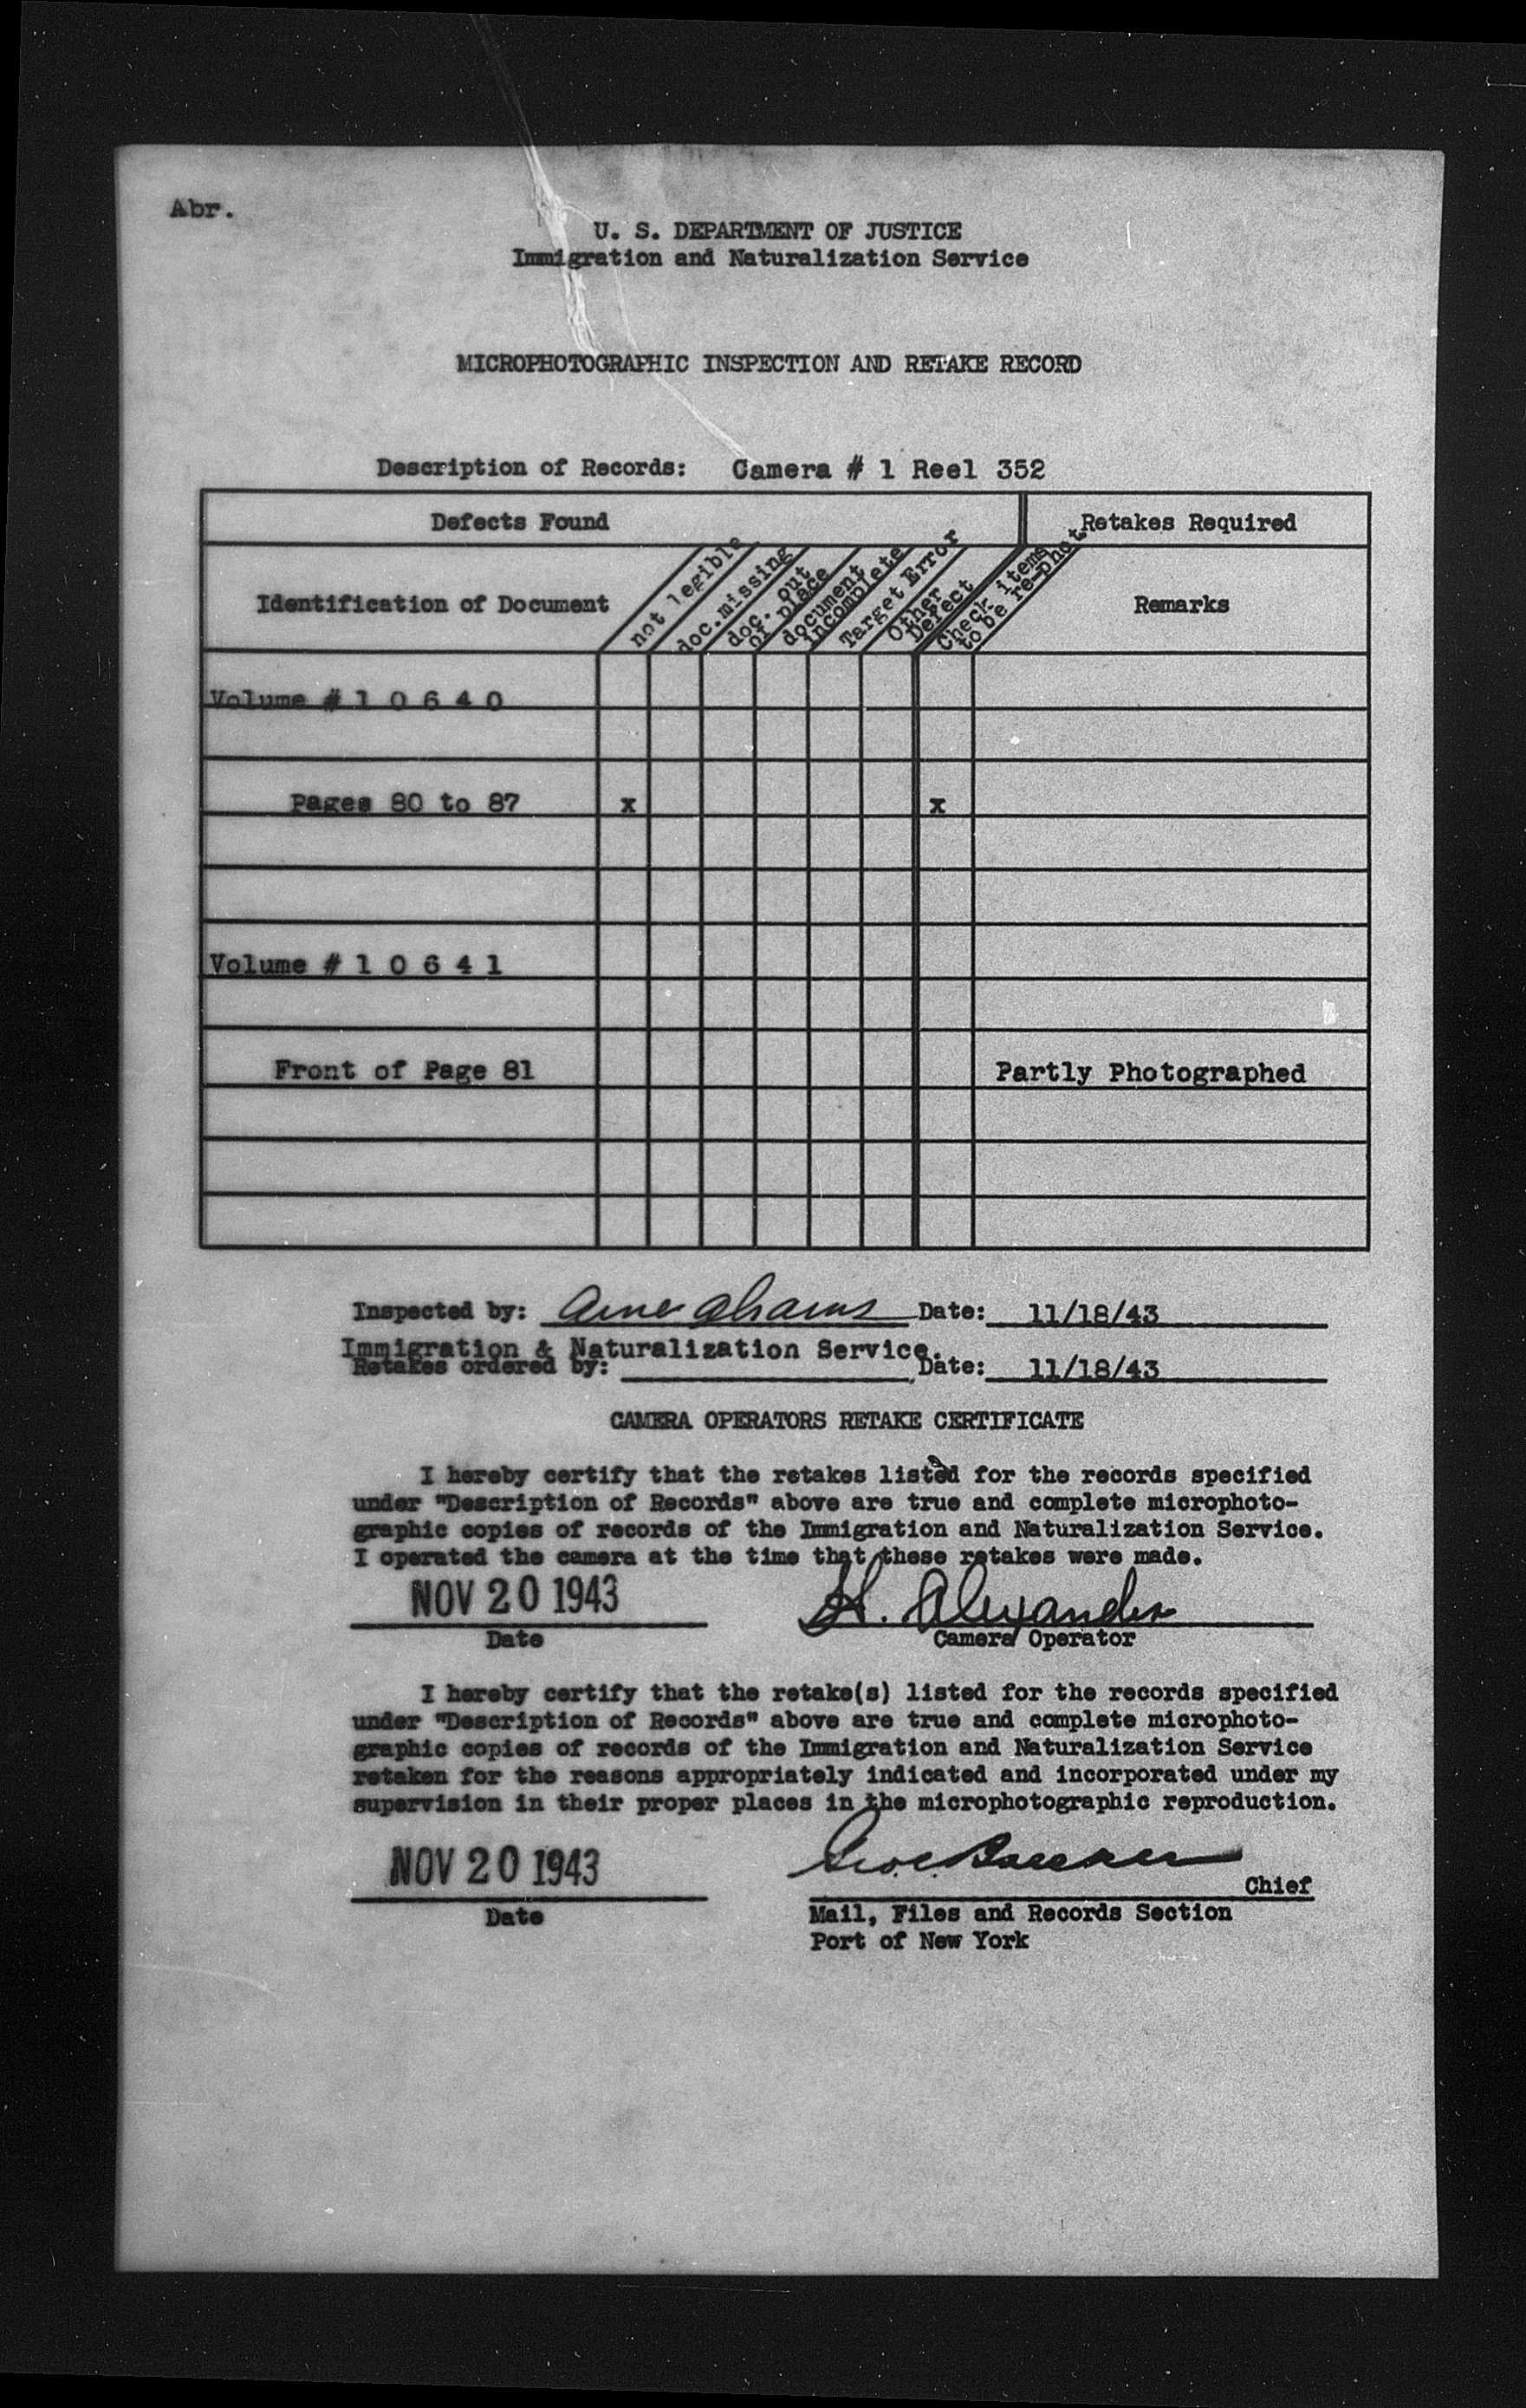 Abr.
U. S. DEPARTMENT OF JUSTICE
Immigration and Naturalization Service
MICROPHOTOGRAPHIC INSPECTION AND RETAKE RECORD
Description of Records: Camera # 1 Reel 352
Defects Found
Retakes Required
Identification of Document
not legible
doc. missing
doc. out
of place
document
incomplete
Target Error
Other
Defect
Check items
to be re-phot
Remarks
Volume # 1 0 6 4 0
Pages 80 to 87 x x
Volume # 1 0 6 4 1
Front of Page 81 Partly Photographed
Inspected by: Abrams Date: 11/18/43
Immigration & Naturalization Service.
Retakes ordered by: Date: 11/18/43
CAMERA OPERATORS RETAKE CERTIFICATE
I hereby certify that the retakes listed for the records specified
under "Description of Records" above are true and complete microphoto-
graphic copies of records of the Immigration and Naturalization Service.
I operated the camera at the time that these retakes were made.
NOV 20 1943 H. Alexander
Date Camera Operator
I hereby certify that the retake(s) listed for the records specified
under "Description of Records" above are true and complete microphoto-
graphic copies of records of the Immigration and Naturalization Service
retaken for the reasons appropriately indicated and incorporated under my
supervision in their proper places in the microphotographic reproduction.
NOV 20 1943
Chief
Date Mail, Files and Records Section
Port of New York